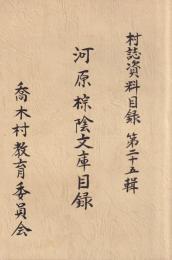 村誌資料目録 第二十五輯
河原椋陰文庫目録
喬木村教育委員会